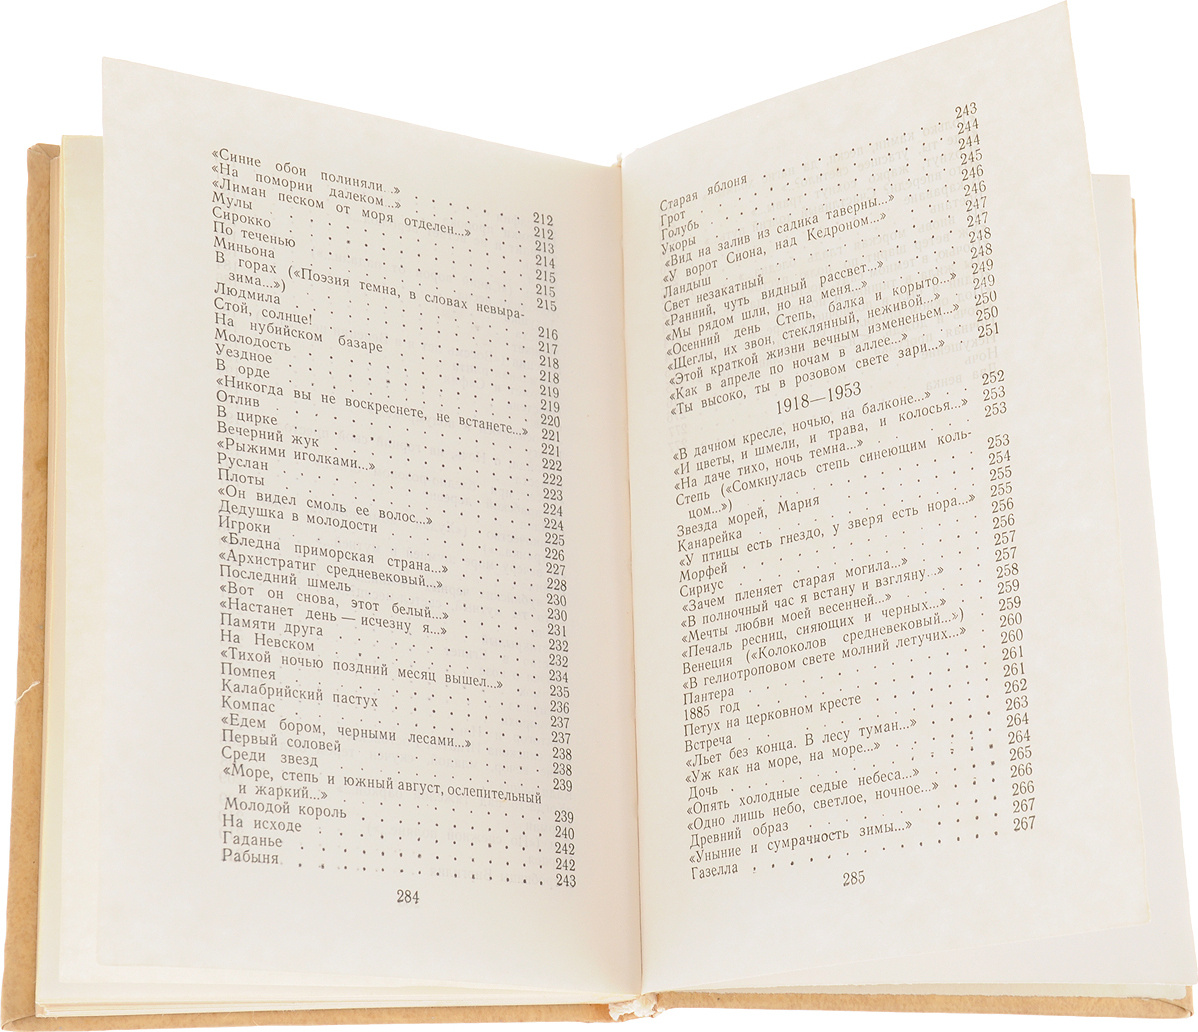 «Синие обои полиняли...» 212
«На помории далеком...» 212
«Лиман песком от моря отделен...» 213
Мулы 214
Сирокко 215
По теченью 215
Миньона 215
В горах («Поэзия темна, в словах невыра-
зима...») 216
Людмила 217
Стой, солнце! 218
На нубийском базаре 218
Молодость 219
Уездное 219
В орде 220
«Никогда вы не воскреснете, не встанете...» 221
Отлив 221
В цирке 222
Вечерний жук 222
«Рыжими иголками...» 223
Руслан 224
Плоты 224
«Он видел смоль ее волос...» 225
Дедушка в молодости 226
Игроки 227
«Бледна приморская страна...» 228
«Архистратиг средневековый...» 230
Последний шмель 230
«Вот он снова, этот белый...» 231
«Настанет день — исчезну я...» 232
Памяти друга 232
На Невском 234
«Тихой ночью поздний месяц вышел...» 235
Помпея 236
Калабрийский пастух 237
Компас 237
«Едем бором, черными лесами...» 238
Первый соловей 238
Среди звезд 239
«Море, степь и южный август, ослепительный
и жаркий...» 239
Молодой король 240
На исходе 242
Гаданье 242
Рабыня 243
284
Старая яблоня 243
Грот 244
Голубь 244
Укоры 245
«Вид на залив из садика таверны...» 246
«У ворот Сиона, над Кедроном...» 246
Ландыш 247
Свет незакатный 247
«Ранний, чуть видный рассвет...» 248
«Мы рядом шли, но на меня...» 248
«Осенний день Степь, балка и корыто...» 249
«Щеглы, их звон, стеклянный, неживой...» 249
«Этой краткой жизни вечным измененьем...» 250
«Как в апреле по ночам в аллее...» 250
«Ты высоко, ты в розовом свете зари...» 251
1918—1953
«В дачном кресле, ночью, на балконе...» 252
«И цветы, и шмели, и трава, и колосья...» 253
«На даче тихо, ночь темна...» 253
Степь («Сомкнулась степь синеющим коль-
цом...») 253
Звезда морей, Мария 254
Канарейка 255
«У птицы есть гнездо, у зверя есть нора...» 255
Морфей 256
Сириус 256
«Зачем пленяет старая могила...» 257
«В полночный час я встану и взгляну...» 257
«Мечты любви моей весенней...» 258
«Печаль ресниц, сияющих и черных...» 259
Венеция («Колоколов средневековый...») 259
«В гелиотроповом свете молний летучих...» 260
Пантера 260
1885 год 261
Петух на церковном кресте 261
Встреча 262
«Льет без конца. В лесу туман...» 263
«Уж как на море, на море...» 264
Дочь 264
«Опять холодные седые небеса...» 265
«Одно лишь небо, светлое, ночное...» 266
Древний образ 266
«Уныние и сумрачность зимы...» 267
Газелла 267
285